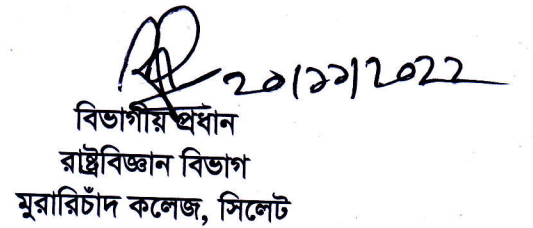 ২০|১১|২০২২
বিভাগীয় প্রধান
রাষ্ট্রবিজ্ঞান বিভাগ
মুরারিচাঁদ কলেজ, সিলেট